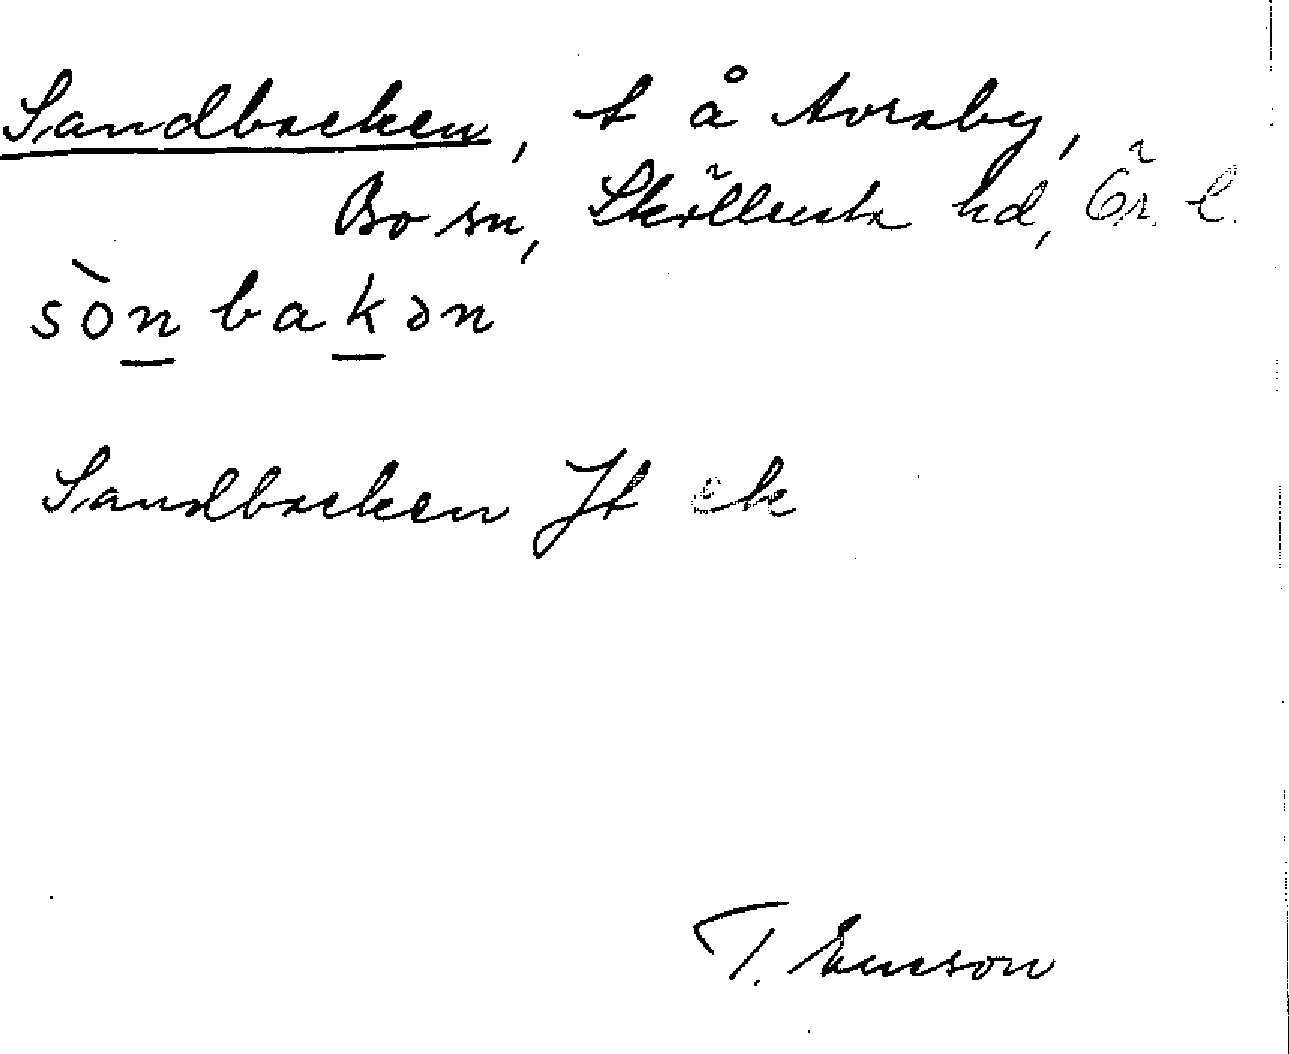 Sandbacken, t å Avraby,
Bo sn, Sköllersta hd, Ör. l.
sònbakən
Sandbacken Jt ek
T. Ericson